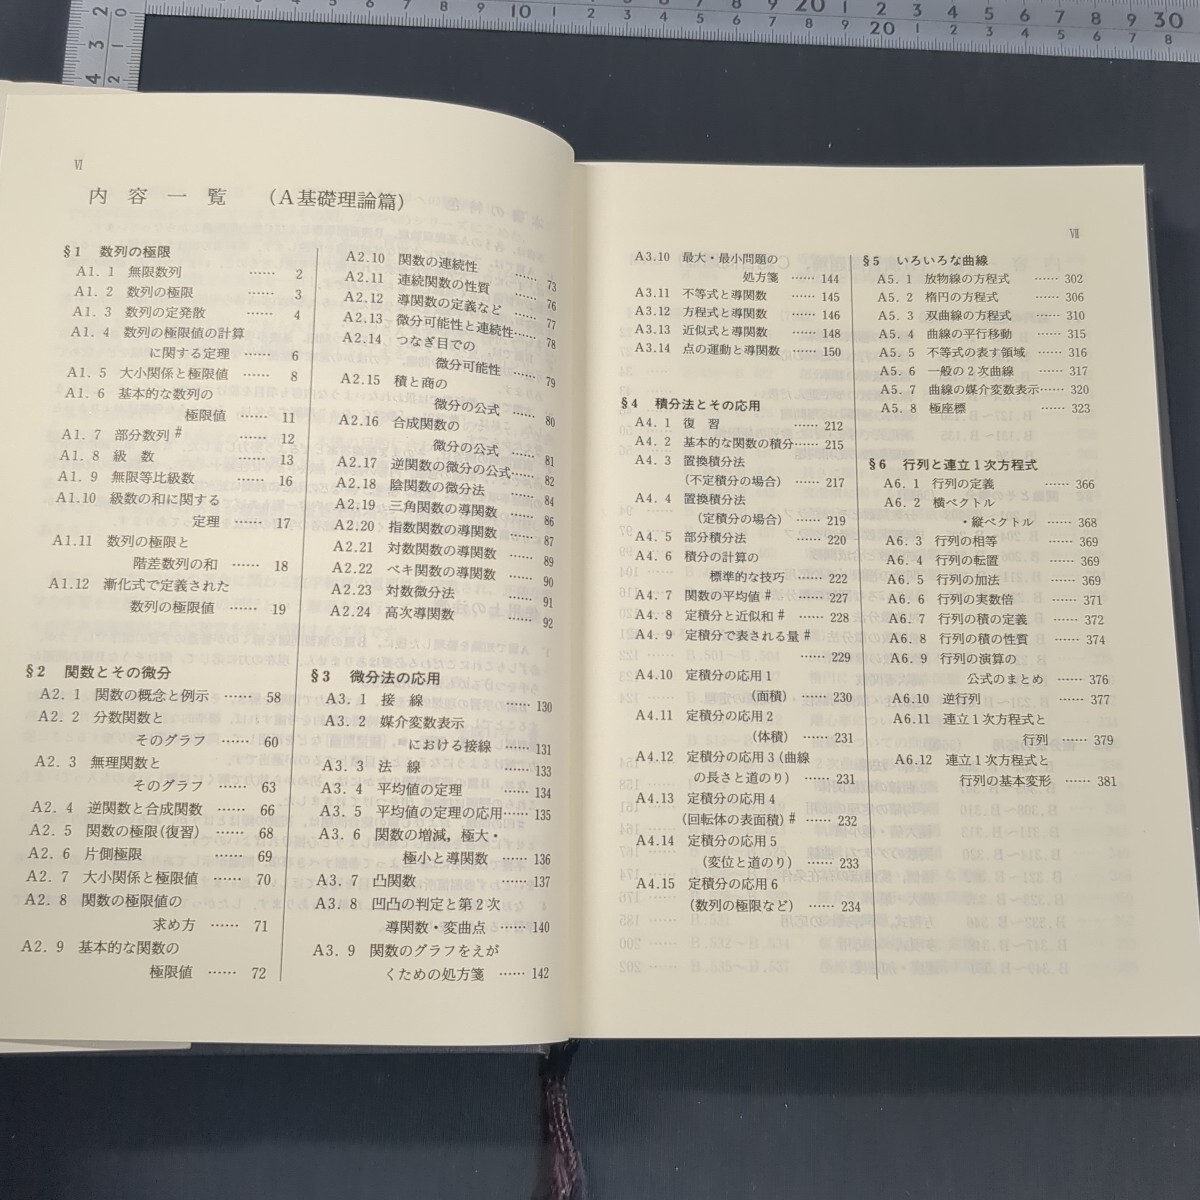 VI
内容一覧 (A基礎理論篇)
§1 数列の極限
A1. 1 無限数列 …… 2
A1. 2 数列の極限 …… 3
A1. 3 数列の定発散 …… 4
A1. 4 数列の極限値の計算
に関する定理 …… 6
A1. 5 大小関係と極限値 …… 8
A1. 6 基本的な数列の
極限値 …… 11
A1. 7 部分数列# …… 12
A1. 8 級数 …… 13
A1. 9 無限等比級数 …… 16
A1.10 級数の和に関する
定理 …… 17
A1.11 数列の極限と
階差数列の和 …… 18
A1.12 漸化式で定義された
数列の極限値 …… 19
§2 関数とその微分
A2. 1 関数の概念と例示 …… 58
A2. 2 分数関数と
そのグラフ …… 60
A2. 3 無理関数と
そのグラフ …… 63
A2. 4 逆関数と合成関数 …… 66
A2. 5 関数の極限(復習) …… 68
A2. 6 片側極限 …… 69
A2. 7 大小関係と極限値 …… 70
A2. 8 関数の極限値の
求め方 …… 71
A2. 9 基本的な関数の
極限値 …… 72
A2.10 関数の連続性 …… 73
A2.11 連続関数の性質 …… 76
A2.12 導関数の定義など …… 77
A2.13 微分可能性と連続性…… 78
A2.14 つなぎ目での
微分可能性 …… 79
A2.15 積と商の
微分の公式 …… 80
A2.16 合成関数の
微分の公式 …… 81
A2.17 逆関数の微分の公式…… 82
A2.18 陰関数の微分法 …… 84
A2.19 三角関数の導関数 …… 86
A2.20 指数関数の導関数 …… 87
A2.21 対数関数の導関数 …… 89
A2.22 ベキ関数の導関数 …… 90
A2.23 対数微分法 …… 91
A2.24 高次導関数 …… 92
§3 微分法の応用
A3. 1 接線 …… 130
A3. 2 媒介変数表示
における接線 …… 131
A3. 3 法線 …… 133
A3. 4 平均値の定理 …… 134
A3. 5 平均値の定理の応用…… 135
A3. 6 関数の増減,極大・
極小と導関数 …… 136
A3. 7 凸関数 …… 137
A3. 8 凹凸の判定と第2次
導関数・変曲点 …… 140
A3. 9 関数のグラフをえが
くための処方箋 …… 142
VII
A3.10 最大・最小問題の
処方箋 …… 144
A3.11 不等式と導関数 …… 145
A3.12 方程式と導関数 …… 146
A3.13 近似式と導関数 …… 148
A3.14 点の運動と導関数 …… 150
§4 積分法とその応用
A4. 1 復習 …… 212
A4. 2 基本的な関数の積分…… 215
A4. 3 置換積分法
(不定積分の場合) …… 217
A4. 4 置換積分法
(定積分の場合) …… 219
A4. 5 部分積分法 …… 220
A4. 6 積分の計算の
標準的な技巧 …… 222
A4. 7 関数の平均値# …… 227
A4. 8 定積分と近似和# …… 228
A4. 9 定積分で表される量#
…… 229
A4.10 定積分の応用1
(面積) …… 230
A4.11 定積分の応用2
(体積) …… 231
A4.12 定積分の応用3(曲線
の長さと道のり) …… 231
A4.13 定積分の応用4
(回転体の表面積)# …… 232
A4.14 定積分の応用5
(変位と道のり) …… 233
A4.15 定積分の応用6
(数列の極限など) …… 234
§5 いろいろな曲線
A5. 1 放物線の方程式 …… 302
A5. 2 楕円の方程式 …… 306
A5. 3 双曲線の方程式 …… 310
A5. 4 曲線の平行移動 …… 315
A5. 5 不等式の表す領域 …… 316
A5. 6 一般の2次曲線 …… 317
A5. 7 曲線の媒介変数表示…… 320
A5. 8 極座標 …… 323
§6 行列と連立1次方程式
A6. 1 行列の定義 …… 366
A6. 2 横ベクトル
・縦ベクトル …… 368
A6. 3 行列の相等 …… 369
A6. 4 行列の転置 …… 369
A6. 5 行列の加法 …… 369
A6. 6 行列の実数倍 …… 371
A6. 7 行列の積の定義 …… 372
A6. 8 行列の積の性質 …… 374
A6. 9 行列の演算の
公式のまとめ …… 376
A6.10 逆行列 …… 377
A6.11 連立1次方程式と
行列 …… 379
A6.12 連立1次方程式と
行列の基本変形 …… 381